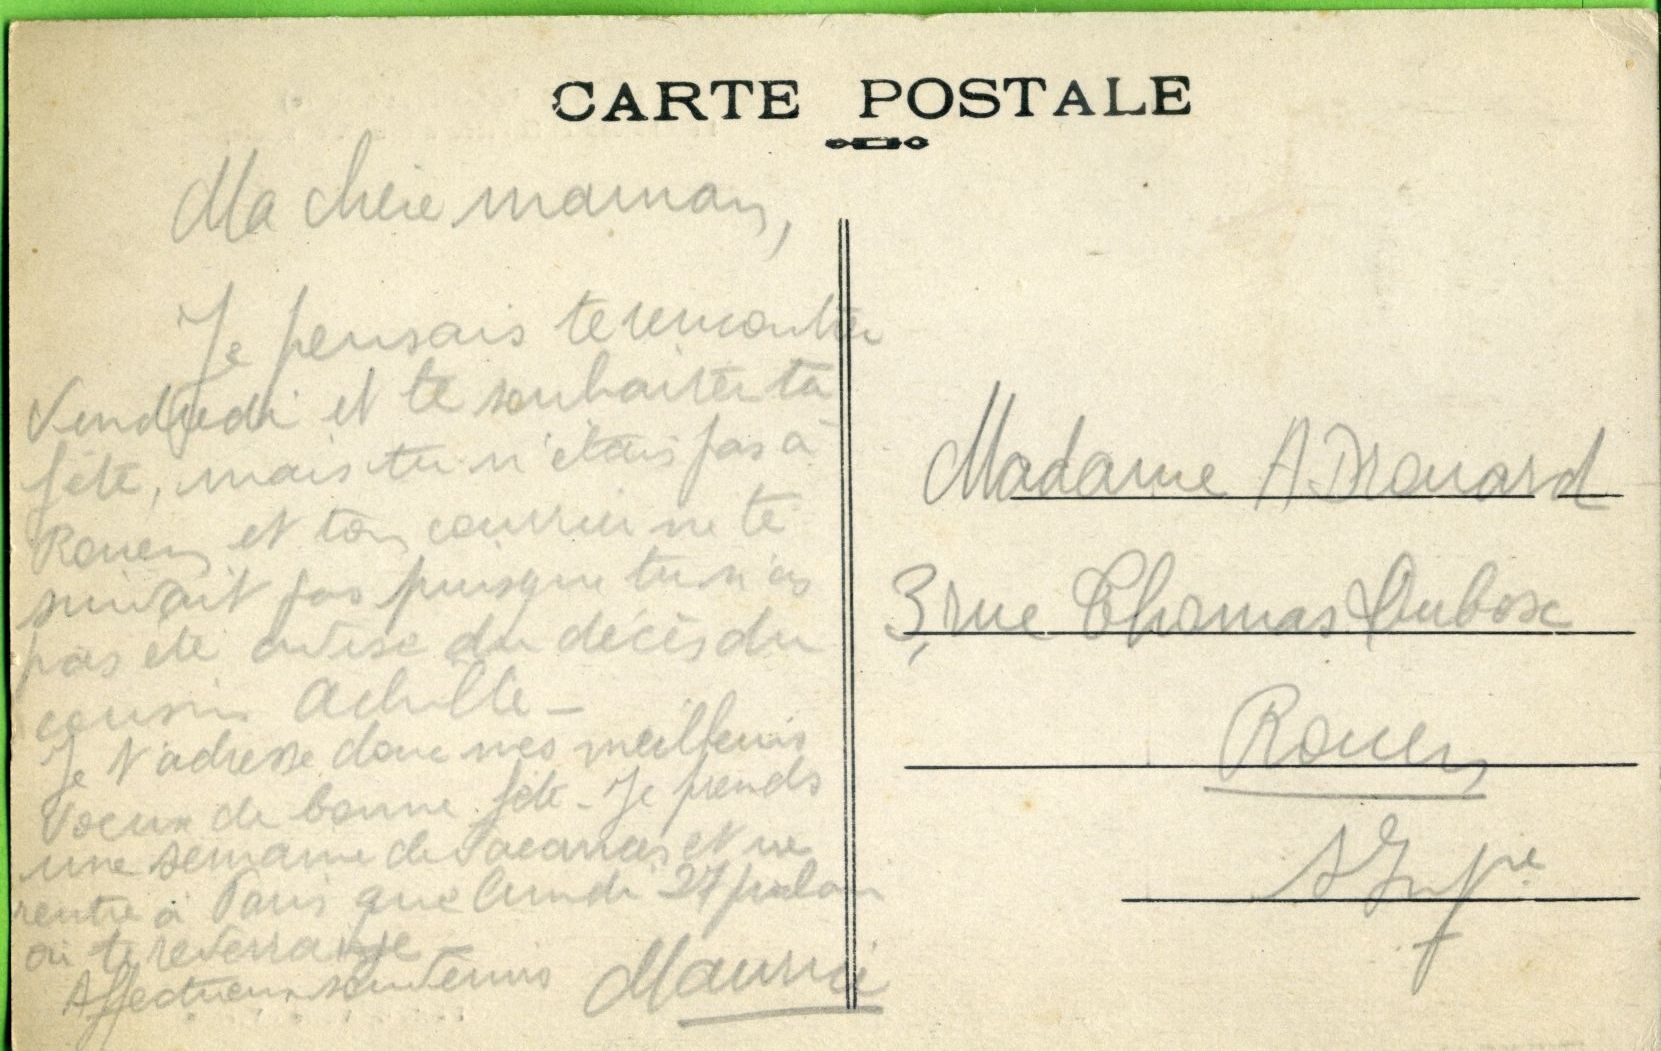 CARTE POSTALE
Ma chère maman,
Je pensais te rencontrer
Vendredi et te souhaiter ta
fête, mais tu n'étais pas à
Rouen et ton courrier ne te
suivait pas puisque tu n'as
pas été avisé du décès du
cousin Achille -
Je t'adresse donc mes meilleurs
voeux de bonne fête - Je prends
une semaine de vacances et ne
rentre à Paris que lundi 27
où te reverrai-je
Affectueux souvenirs Maurice
Madame A. Drouard
3, rue Thomas Dubosc
Rouen
S Infre